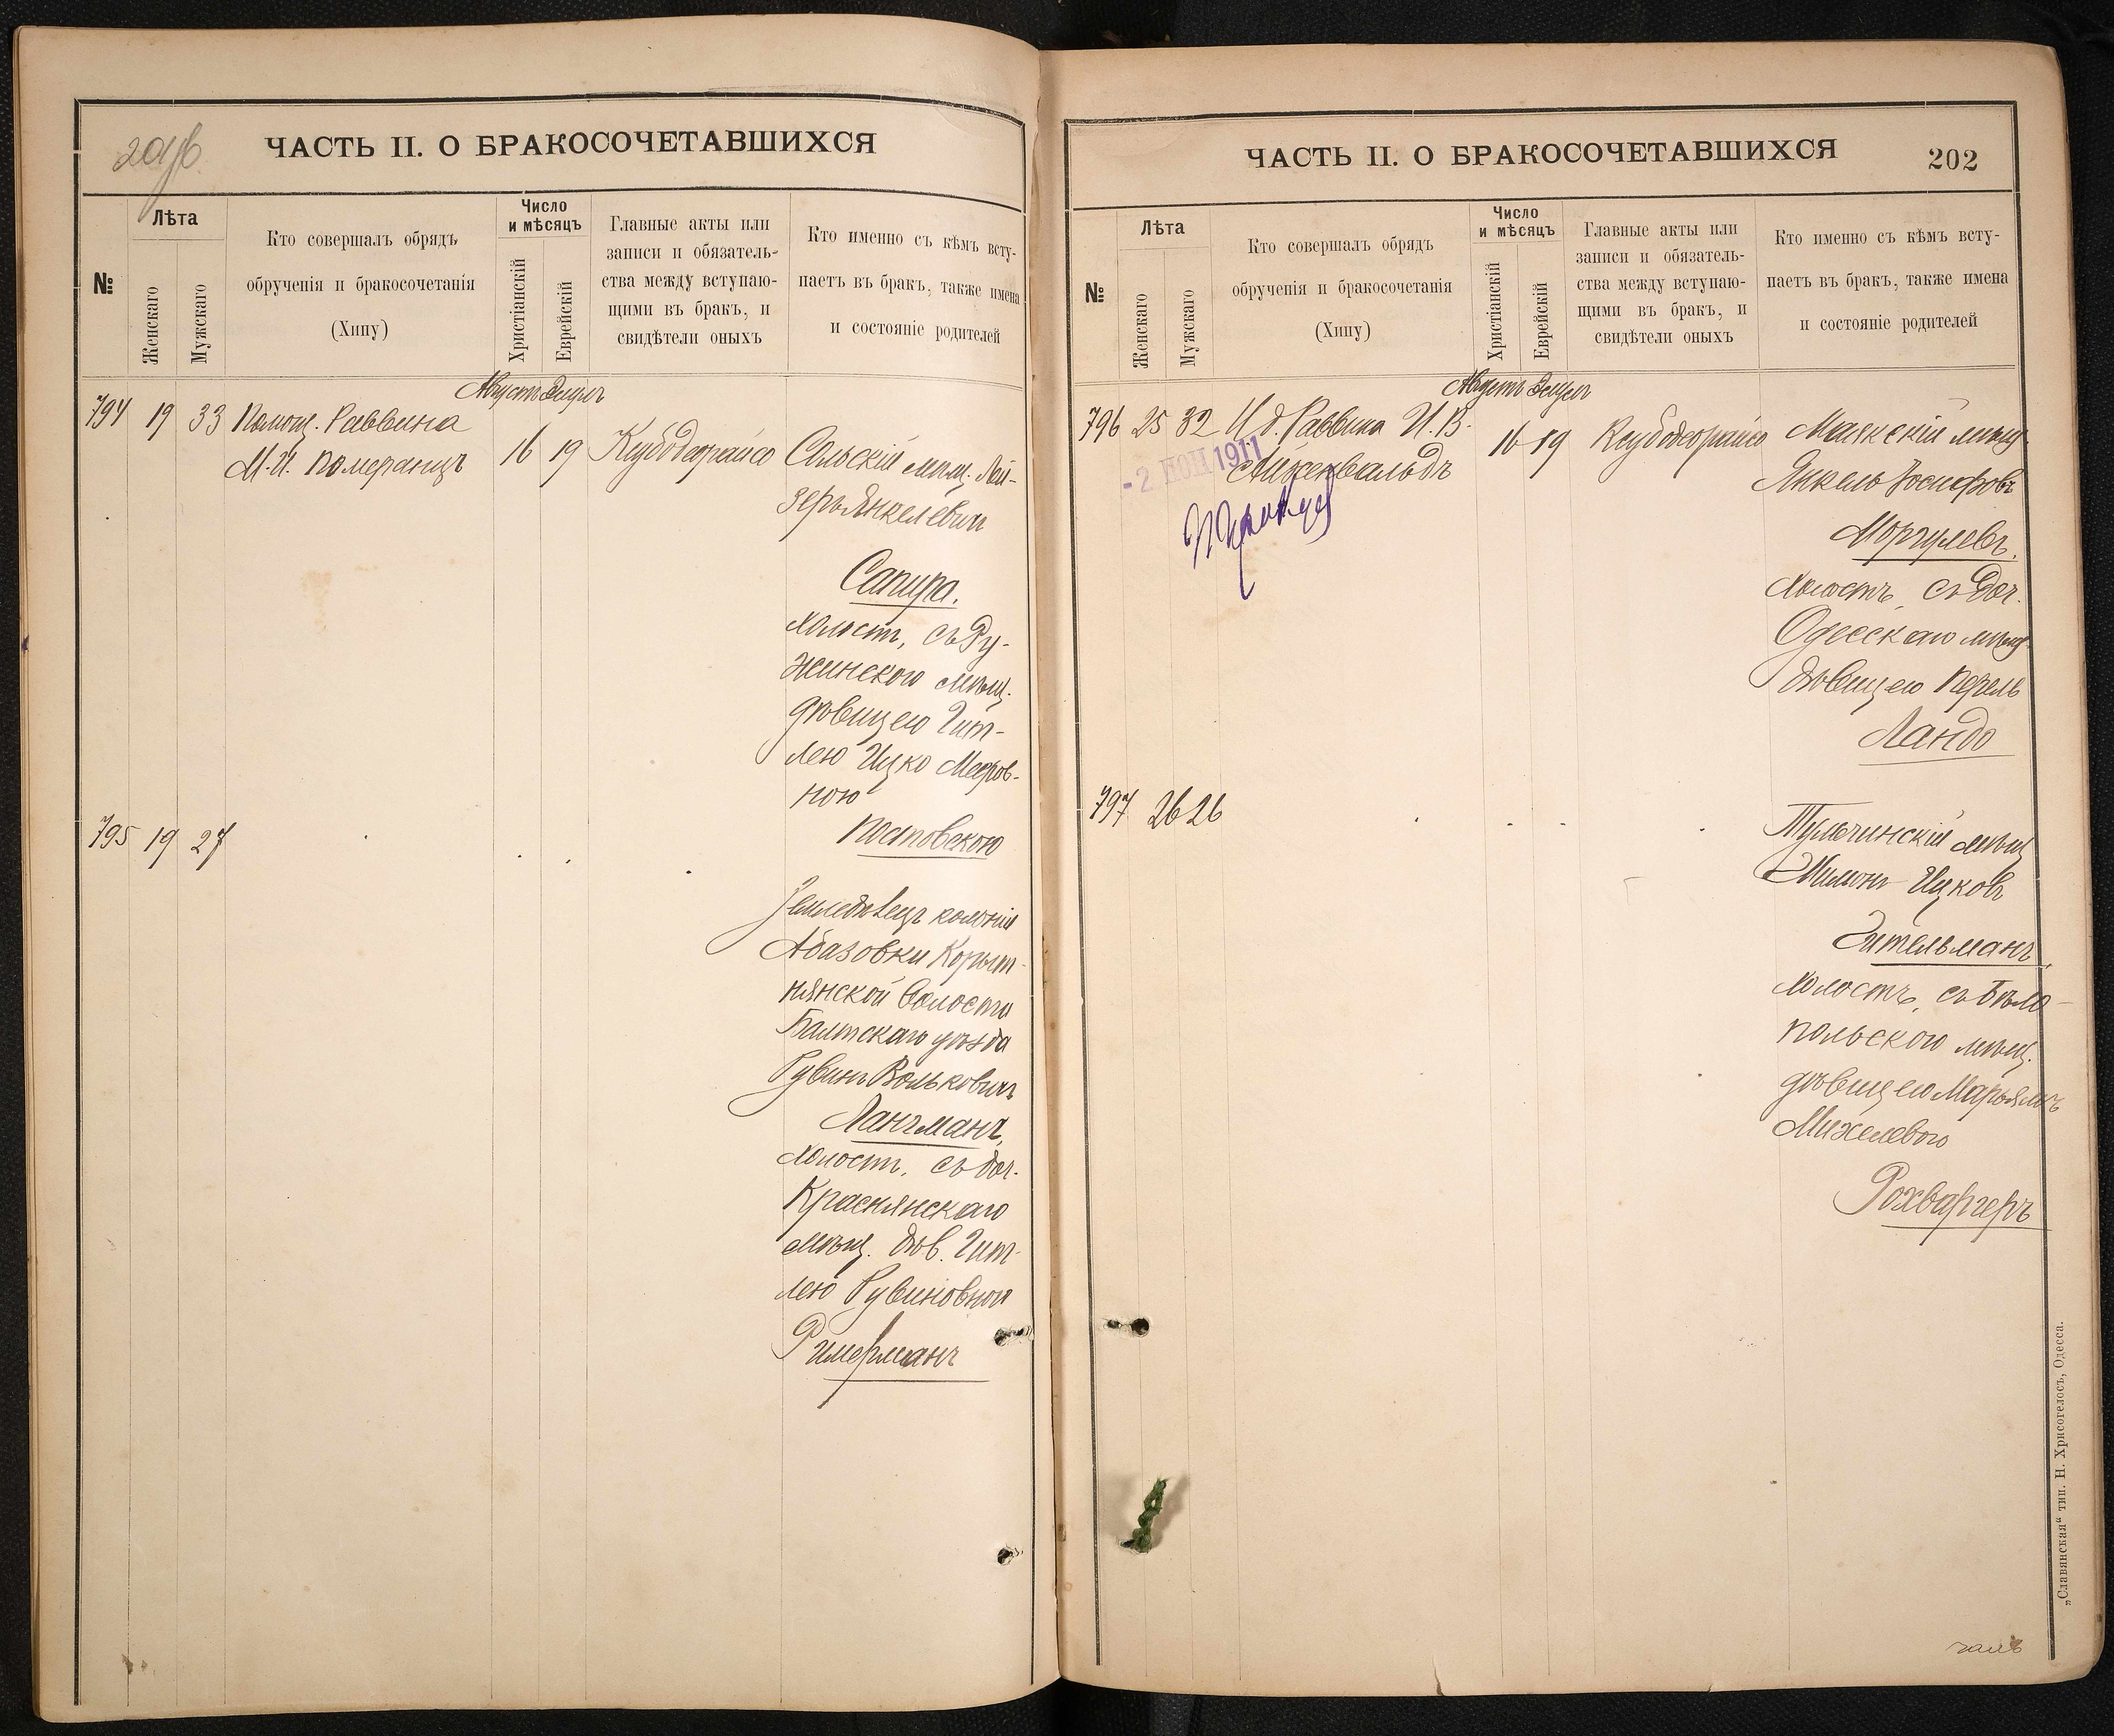 201об
ЧАСТЬ II. О БРАКОСОЧЕТАВШИХСЯ
№
Лѣта
Женскаго
Мужскаго
Кто совершалъ обрядъ
обрученія и бракосочетанія
(Хипу)
Число
и мѣсяцъ
Христіанскій
Еврейскій
Главные акты или
записи и обязатель-
ства между вступаю-
щими въ бракъ, и
свидѣтели оныхъ
Кто именно съ кѣмъ всту-
паетъ въ бракъ, также имена
и состояніе родителей
Августъ Элулъ
794 19 33 Помощ. Раввина
М. И. Померанцъ
16 19 Ксубодеорайсо
Сольскій мѣщ. Лей-
зеръ Янкелевич
Сапира.
холост, съ Ру-
жинского мѣщ.
дѣвицею Гит-
лею Ицко Мееров-
ною
Постовскою
795 19 27
Земледѣлецъ колоніи
Абазовки Корыт-
нянской волости
Балтскаго уѣзда
Рувинъ Волькович
Лангманъ,
холост, съ доч.
Краснянскаго
мѣщ. дѣв. Гит-
лею Рувиновной
Римерманъ
ЧАСТЬ II. О БРАКОСОЧЕТАВШИХСЯ
202
№
Лѣта
Женскаго
Мужскаго
Кто совершалъ обрядъ
обрученія и бракосочетанія
(Хипу)
Число
и мѣсяцъ
Христіанскій
Еврейскій
Главные акты или
записи и обязатель-
ства между вступаю-
щими въ бракъ, и
свидѣтели оныхъ
Кто именно съ кѣмъ всту-
паетъ въ бракъ, также имена
и состояніе родителей
Августъ Элулъ
796 25 32 И. д. Раввина И. В.
Айженвальдъ
-2 НОЯ 1911
16 19 Ксубодеорайсо
Маякскій мѣщ.
Янкель Іосифовъ
Моргулевъ.
холостъ, съ доч.
Одесскаго мѣщ.
дѣвицею Перель
Ландо
797 26 26
Тульчинскій мѣщ
Шимонъ Ицковъ
Эйтельманъ,
холостъ, съ Бѣло-
польского мѣщ.
дѣвицею Марьямъ
Михелевою
Рохваргеръ
„Славянская“ тип. Н. Хрисогелосъ, Одесса.